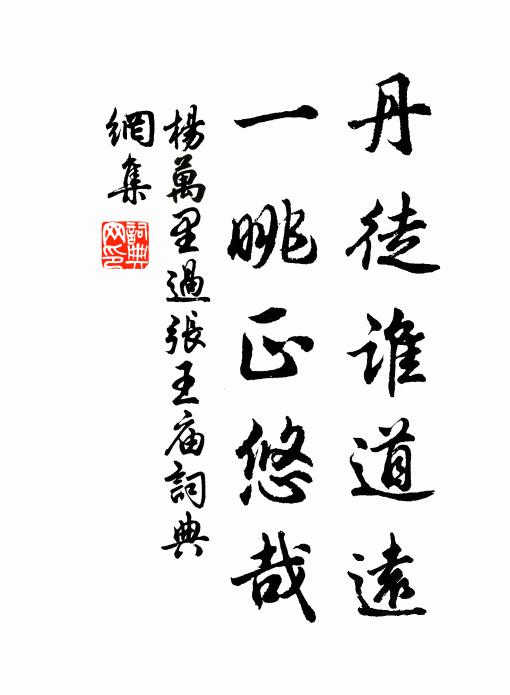 丹徒誰道遠
一眺正悠哉
楊萬里過張王庙詞典
網集
詞典网印